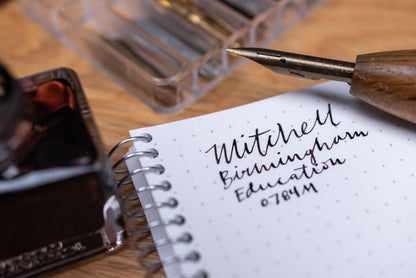 Mitchell
Birmingham
Education
0784M